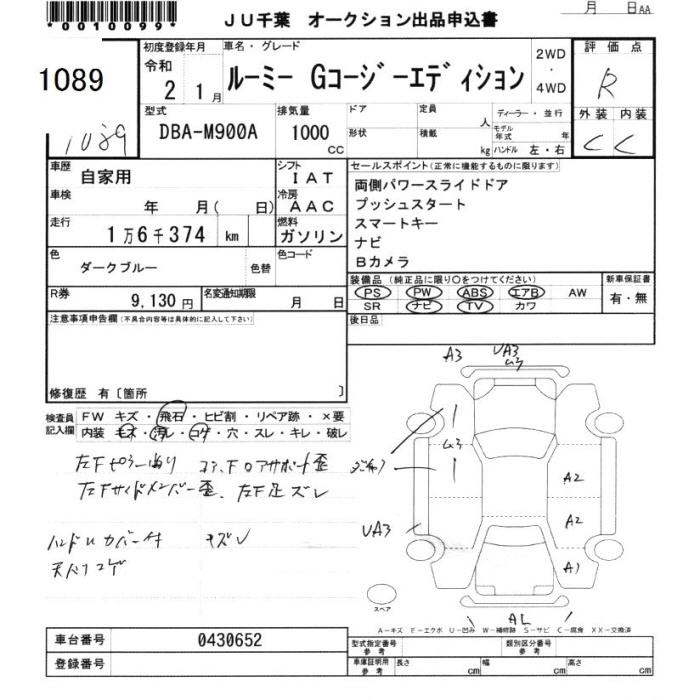 *0010099*
JU千葉 オークション出品申込書
月 日AA
1089
1089
初度登録年月
令和
2 1月
車名・グレード
ルーミー Gコージーエディション
2WD
・
4WD
評価点
R
外装 内装
C C
型式
DBA-M900A
排気量
1000
CC
ドア
形状
定員
人
積載
kg
ディーラー・並行
モデル年式 年
ハンドル 左・右
車歴
自家用
車検
年 月( 日)
走行
1万6千374 km
色
ダークブルー
色替
色コード
シフト
IAT
冷房
AAC
燃料
ガソリン
R券
9,130円
名変通知期限
月 日
セールスポイント(正常に機能するものに限ります)
両側パワースライドドア
プッシュスタート
スマートキー
ナビ
Bカメラ
装備品 (純正品に限り○をつけてください)
PS PW ABS エアB AW
SR ナビ TV カワ
新車保証書
有・無
後日品
注意事項申告欄(不具合内容等は具体的に記入して下さい)
修復歴 有〔箇所 〕
検査員
記入欄
FW キズ・飛石・ヒビ割・リペア跡・×要
内装 キズ・汚レ・コゲ・穴・スレ・キレ・破レ
左Fサイドメンバー歪、左F足ズレ
ハンドルカバー付 キズ
A3
UA3
ム3
ム3
UA3
A2
A2
A1
AL
スペア
A-キズ E-エクボ U-凹み W-補修跡 S-サビ C-腐食 XX-交換済
車台番号 0430652
登録番号
型式指定番号
参考
類別区分番号
参考
車庫証明用
参考
長さ cm
幅 cm
高さ cm